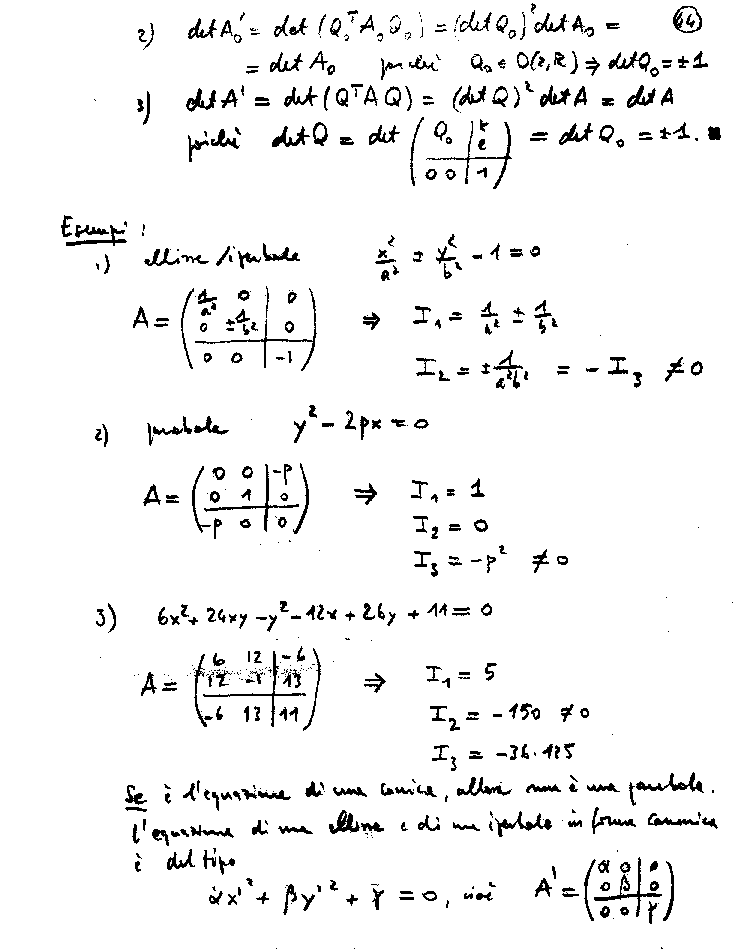 44
2) det A₀' = det (Q₀ᵀ A₀ Q₀) = (det Q₀)² det A₀ =
= det A₀ poiché Q₀ ∈ O(2,ℝ) ⇒ det Q₀ = ±1
3) det A' = det (Qᵀ A Q) = (det Q)² det A = det A
poiché det Q = det ( Q₀ | k e ; 0 0 | 1 ) = det Q₀ = ±1. ■
Esempi:
1) ellisse / iperbole x²/a² ± y²/b² - 1 = 0
A = ( 1/a² 0 | 0 ; 0 ±1/b² | 0 ; 0 0 | -1 ) ⇒ I₁ = 1/a² ± 1/b²
I₂ = ±1/a²b² = - I₃ ≠ 0
2) parabola y² - 2px = 0
A = ( 0 0 | -p ; 0 1 | 0 ; -p 0 | 0 ) ⇒ I₁ = 1
I₂ = 0
I₃ = -p² ≠ 0
3) 6x² + 24xy - y² - 12x + 26y + 11 = 0
A = ( 6 12 | -6 ; 12 -1 | 13 ; -6 13 | 11 ) ⇒ I₁ = 5
I₂ = -150 ≠ 0
I₃ = -36·125
Se è l'equazione di una conica, allora non è una parabola.
L'equazione di una ellisse e di una iperbole in forma canonica
è del tipo
αx'² + βy'² + γ = 0, cioè A' = ( α 0 | 0 ; 0 β | 0 ; 0 0 | γ )